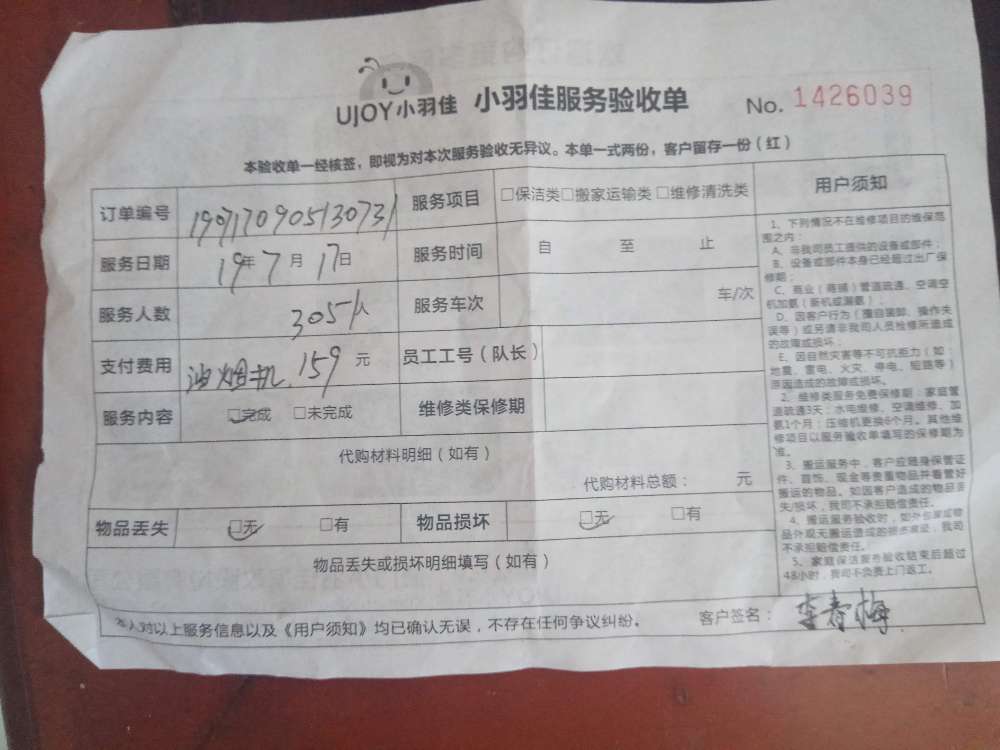 UJOY小羽佳 小羽佳服务验收单 No. 1426039
本验收单一经核签，即视为对本次服务验收无异议。本单一式两份，客户留存一份（红）
订单编号 190717090513073 服务项目 □保洁类□搬家运输类□维修清洗类
服务日期 19年7月17日 服务时间 自 至 止
服务人数 305 服务车次 车/次
支付费用 油烟机 159 元 员工工号（队长）
服务内容 □完成 □未完成 维修类保修期
代购材料明细（如有）
代购材料总额： 元
物品丢失 □无 □有 物品损坏 □无 □有
物品丢失或损坏明细填写（如有）
用户须知
1、下列情况不在维修项目的维保范
围之内：
A、非我司员工提供的设备或部件；
B、设备或部件本身已经超过出厂保
修期；
C、商业（商铺）管道疏通、空调空
机加氨（新机或漏氨）；
D、因客户行为（擅自装卸、操作失
误等）或另请非我司人员检修所造成
的故障或损坏；
E、因自然灾害等不可抗拒力（如：
地震、雷电、火灾、停电、短路等）
原因造成的故障或损坏。
2、维修类服务免费保修期：家庭管
道疏通3天；水电维修、空调维修、加
氨1个月；压缩机更换6个月。其他维
修项目以服务验收单填写的保修期为
准。
3、搬运服务中，客户应随身保管证
件、首饰、现金等贵重物品并看管好
搬运的物品。如因客户造成的物品丢
失/损坏，我司不承担赔偿责任。
4、搬运服务验收时，如外包装或物
品外观无搬运造成的损坏痕迹，我司
不承担赔偿责任。
5、家庭保洁服务验收结束后超过
48小时，我司不负责上门返工。
本人对以上服务信息以及《用户须知》均已确认无误，不存在任何争议纠纷。 客户签名：李春梅